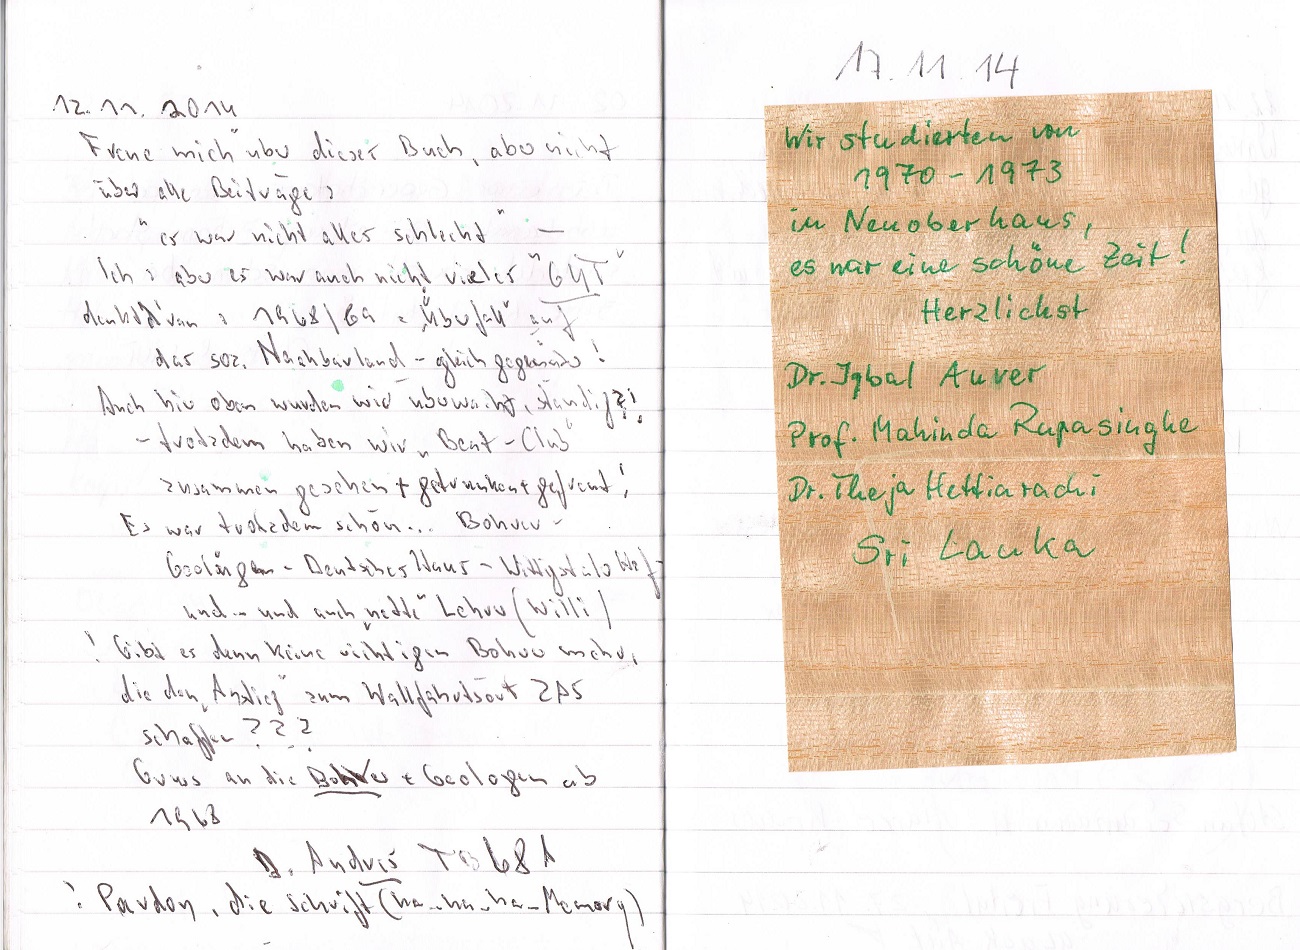 12.11.2014
Freue mich über dieses Buch, aber nicht
über alle Beiträge:
"es war nicht alles schlecht" —
Ich: aber es war auch nicht vieles "GUT"
denkt d'ran: 1968/69: "Überfall" auf
das soz. Nachbarland - gleich gegenüber!
Auch hier oben wurden wir überwacht, ständig?!
- trotzdem haben wir "Beat-Club"
zusammen gesehen + getrunken + gefreut!
Es war trotzdem schön... Bohrer-
Geolängen - Deutsches Haus - Wittigsthalo
und - und auch "nette" Lehrer (Willi)
! Gibt es denn keine richtigen Bohrer mehr,
die den "Anstieg" zum Wallfahrtsort ZAS
schaffen ???
Gruss an die Bohrer + Geologen ab
1968
D. Andris TB68A
! Pardon, die Schrift (ha-ha-ha-Memory)
17.11.14
Wir studierten von
1970 - 1973
in Neuoberhaus,
es war eine schöne Zeit!
Herzlichst
Dr. Iqbal Auver
Prof. Mahinda Rupasinghe
Dr. Theja Hettiarachi
Sri Lanka